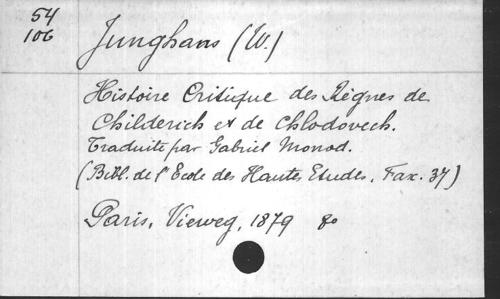 54
106
Junghans (W.)
Histoire Critique des Règnes de
Childerich et de Chlodovech.
Traduite par Gabriel Monod.
(Bibl. de l'Ecole des Hautes Etudes, Fax. 37)
Paris, Vieweg, 1879 8o